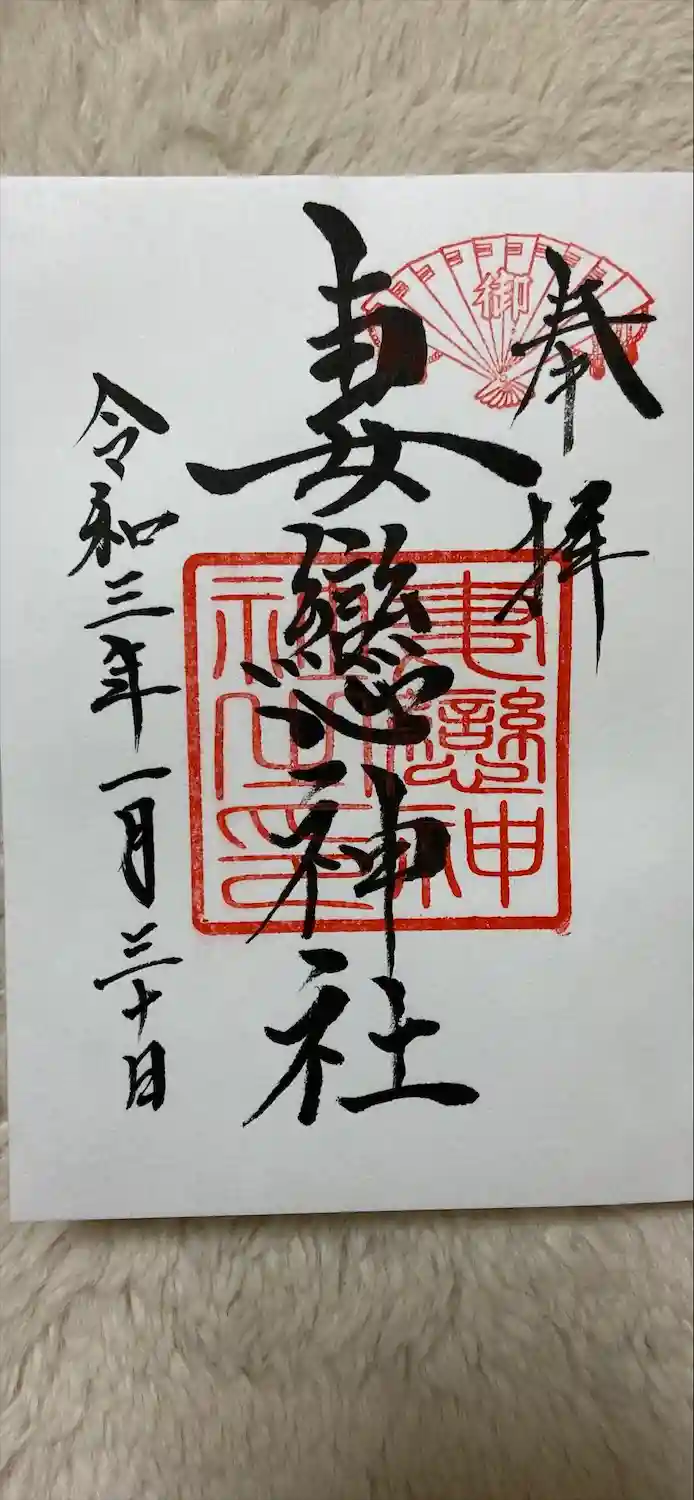 奉拝
御
妻戀神社
妻戀神社之印
令和三年一月三十日